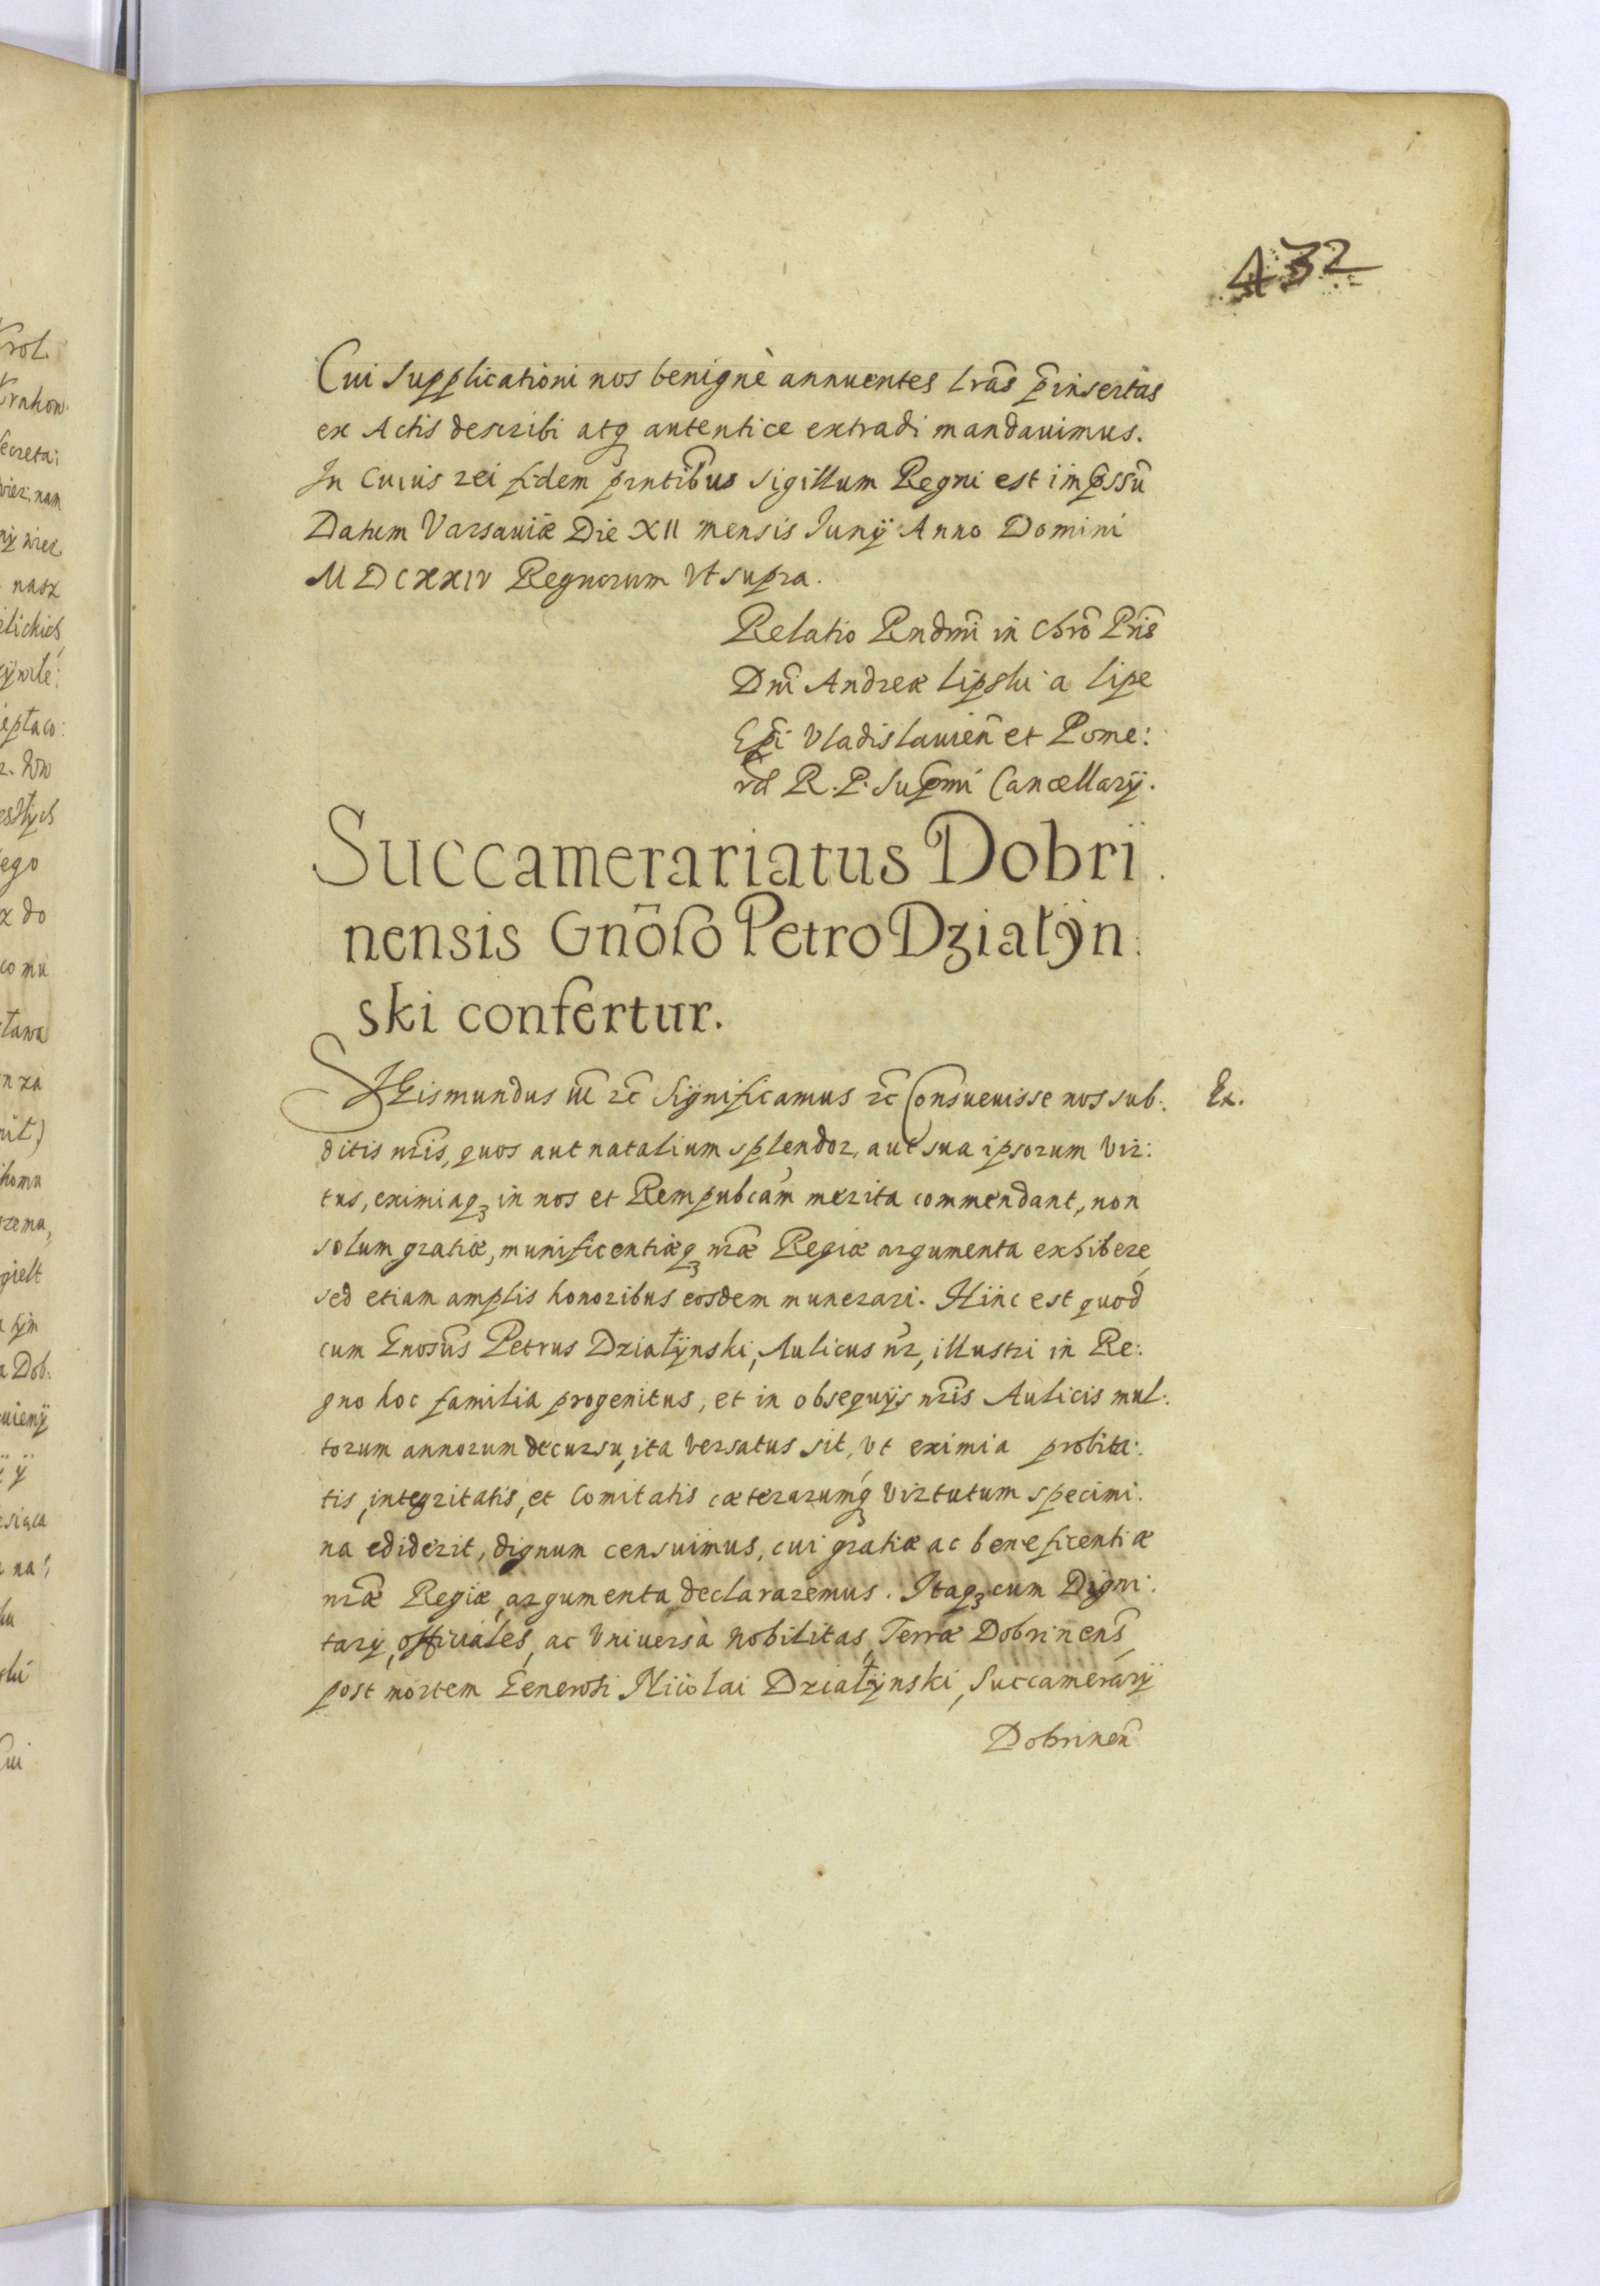 432
Cui Supplicationi nos benignè annuentes Lrãs p̃insertas
ex Actis describi atq̃ autentice extradi mandauimus.
In Cuius rei fidem p̃ntib̃us Sigillum Regni est imp̃ssũ
Datum Varsauiæ Die XII mensis Iunÿ Anno Domini
MDCXXIV Regnorum Vt supra.
Relatio Rndmĩ in Chrõ Pñis
Dnĩ Andreæ Lipski a Lipe
Ep̃i Vladislauien̄ et Pome:
rał R. P. Sup̃mi Cancellarÿ.
Succamerariatus Dobri
nensis Gnõso Petro Działÿn:
ski confertur.
SIGismundus III ec̃ Significamus ec̃ Consueuisse nos sub: Ex.
ditis nr̃is, quos aut natalium splendor, aut sua ipsorum Vir:
tus, eximiaqꝫ in nos et Rempubcam̃ merita commendant, non
solum gratiæ, munificentiæqꝫ nr̃æ Regiæ argumenta exhibere,
sed etiam amplis honoribus eosdem munerari. Hinc est quod
cum Gnosũs Petrus Działÿnski, Aulicus nr̃, illustri in Re:
gno hoc familia progenitus, et in obsequÿs nr̃is Aulicis mul:
torum annorum decursu, ita Versatus sit, Vt eximia probita:
tis, integritatis, et Comitatis cæterarumqꝫ Virtutum specimi:
na ediderit, dignum censuimus, cui gratiæ ac beneficentiæ
nr̃æ Regiæ argumenta declararemus. Itaqꝫ cum Digni:
tarÿ, officiales, ac Vniuersa Nobilitas, Terræ Dobrinens̃,
post mortem Generosi Nicolai Działÿnski, Succamerarÿ
Dobrinen̄